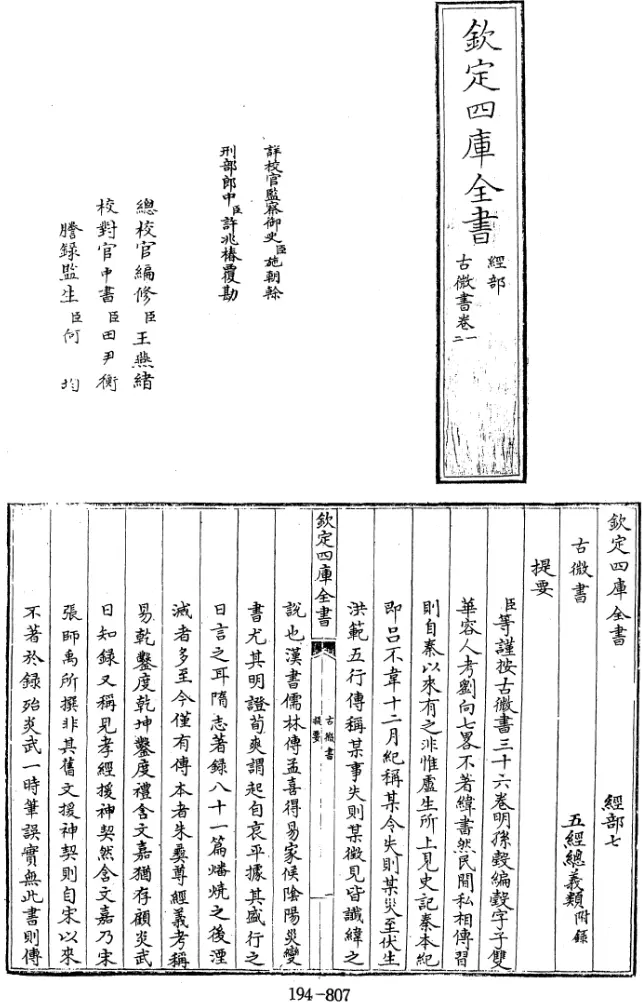 欽定四庫全書
經部
古微書卷一二
詳校官監察御史臣施朝幹
刑部郎中臣許兆椿覆勘
總校官編修臣王燕緒
校對官中書臣田尹衡
謄録監生臣何均
欽定四庫全書 經部七
古微書 五經總義類附錄
提要
臣等謹按古微書三十六卷明孫瑴編瑴字子雙
華容人考劉向七畧不著緯書然民間私相傳習
則自秦以來有之非惟盧生所上見史記秦本紀
即吕不韋十二月紀稱某令失則某災至伏生
洪範五行傳稱某事失則某徵見皆讖緯之
欽定四庫全書
古微書
提要
一
說也漢書儒林傳孟喜得易家候陰陽災變
書尤其明證荀爽謂起自哀平據其盛行之
日言之耳隋志著録八十一篇燔燒之後湮
滅者多至今僅有傳本者朱彞尊經義考稱
易乾鑿度乾坤鑿度禮含文嘉猶存顧炎武
日知録又稱見孝經援神契然含文嘉乃宋
張師禹所撰非其舊文援神契則自宋以來
不著於録殆炎武一時筆誤實無此書則傳
194-807